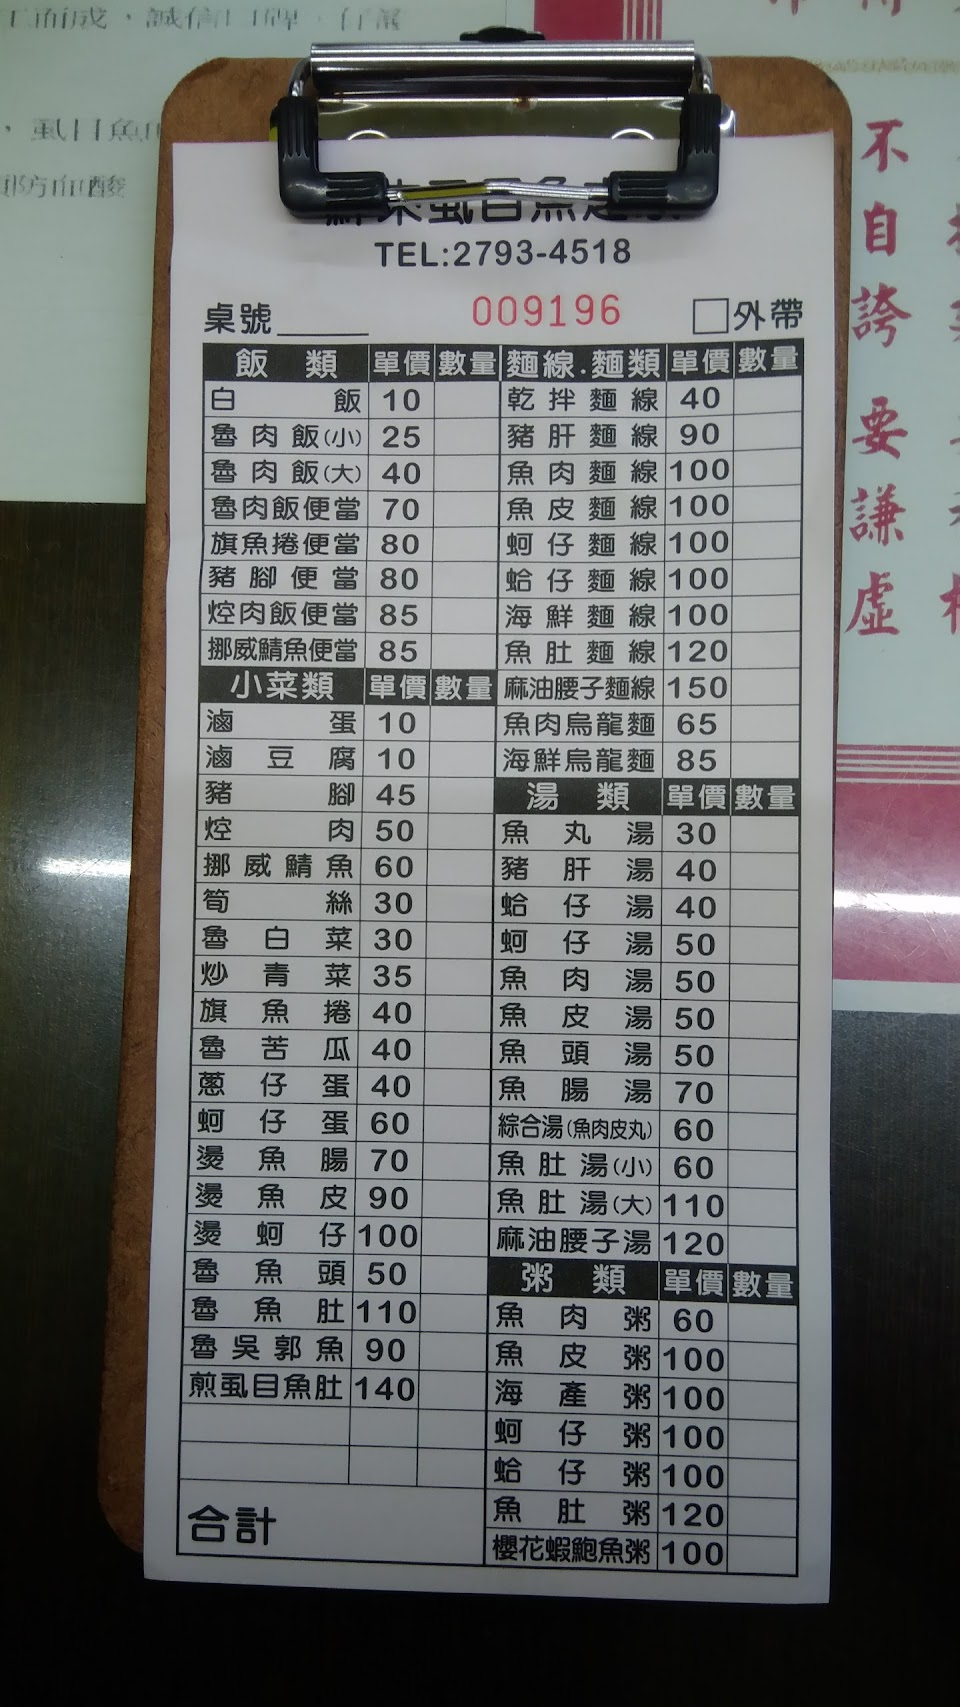 誠信口碑
虱目魚
不自誇 要謙虛
虱目魚
TEL:2793-4518
桌號 009196 外帶
飯類 單價 數量
白飯 10
魯肉飯(小) 25
魯肉飯(大) 40
魯肉飯便當 70
旗魚捲便當 80
豬腳便當 80
焢肉飯便當 85
挪威鯖魚便當 85
小菜類 單價 數量
滷蛋 10
滷豆腐 10
豬腳 45
焢肉 50
挪威鯖魚 60
筍絲 30
魯白菜 30
炒青菜 35
旗魚捲 40
魯苦瓜 40
蔥仔蛋 40
蚵仔蛋 60
燙魚腸 70
燙魚皮 90
燙蚵仔 100
魯魚頭 50
魯魚肚 110
魯吳郭魚 90
煎虱目魚肚 140
合計
麵線.麵類 單價 數量
乾拌麵線 40
豬肝麵線 90
魚肉麵線 100
魚皮麵線 100
蚵仔麵線 100
蛤仔麵線 100
海鮮麵線 100
魚肚麵線 120
麻油腰子麵線 150
魚肉烏龍麵 65
海鮮烏龍麵 85
湯類 單價 數量
魚丸湯 30
豬肝湯 40
蛤仔湯 40
蚵仔湯 50
魚肉湯 50
魚皮湯 50
魚頭湯 50
魚腸湯 70
綜合湯(魚肉皮丸) 60
魚肚湯(小) 60
魚肚湯(大) 110
麻油腰子湯 120
粥類 單價 數量
魚肉粥 60
魚皮粥 100
海產粥 100
蚵仔粥 100
蛤仔粥 100
魚肚粥 120
櫻花蝦鮑魚粥 100